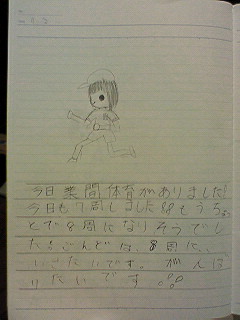 今日業間体育がありました!
今日も7周しました!!もうちょ
とで8周になりそうでし
た。こんどは、8周に、
いきたいです。がんば
りたいです